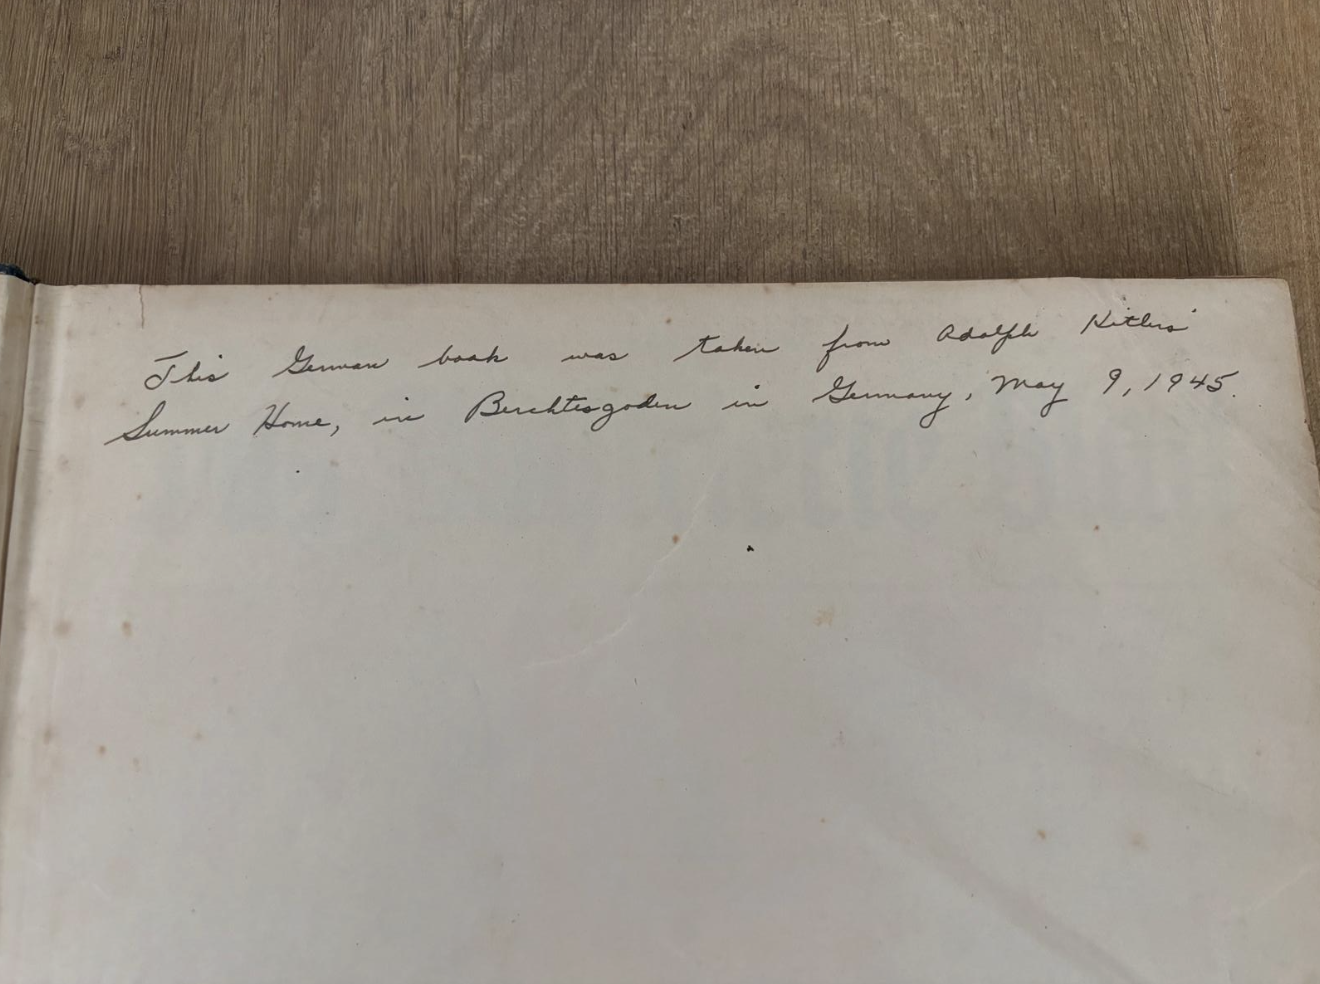 This German book was taken from Adolph Hitlers'
Summer Home, in Berchtesgaden in Germany, May 9, 1945.